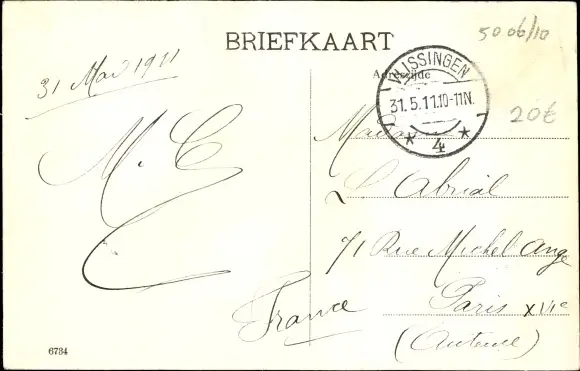 5006/10
BRIEFKAART
31 Mai 1911
Adreszijde
VLISSINGEN
31.5.11.10-11N.
4
20€
M. C
L Abrial
71 Rue Michel Ange
Paris XVIe
France
(Auteuil)
6734